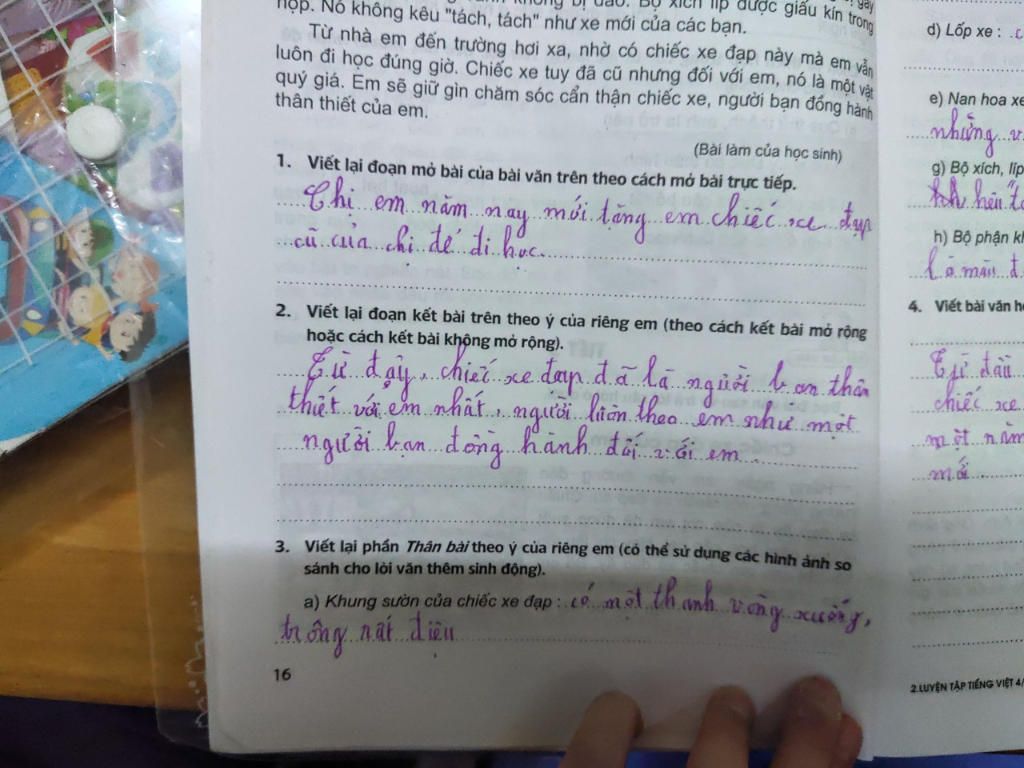 hộp. Nó không kêu "tách, tách" như xe mới của các bạn.
Từ nhà em đến trường hơi xa, nhờ có chiếc xe đạp này mà em vẫn
luôn đi học đúng giờ. Chiếc xe tuy đã cũ nhưng đối với em, nó là một vật
quý giá. Em sẽ giữ gìn chăm sóc cẩn thận chiếc xe, người bạn đồng hành
thân thiết của em.
(Bài làm của học sinh)
1. Viết lại đoạn mở bài của bài văn trên theo cách mở bài trực tiếp.
Chị em năm nay mới tặng em chiếc xe đạp
cũ của chị để đi học.
2. Viết lại đoạn kết bài trên theo ý của riêng em (theo cách kết bài mở rộng
hoặc cách kết bài không mở rộng).
Từ đấy, chiếc xe đạp đã là người bạn thân
thiết với em nhất, người luôn theo em như một
người bạn đồng hành đối với em.
3. Viết lại phần Thân bài theo ý của riêng em (có thể sử dụng các hình ảnh so
sánh cho lời văn thêm sinh động).
a) Khung sườn của chiếc xe đạp : có một thanh vòng xuống,
trông rất điệu
16
d) Lốp xe :
e) Nan hoa xe
những
g) Bộ xích, líp
h) Bộ phận
là màu
4. Viết bài văn
Từ đầu
chiếc xe
một năm
mới.
2.LUYỆN TẬP TIẾNG VIỆT 4/